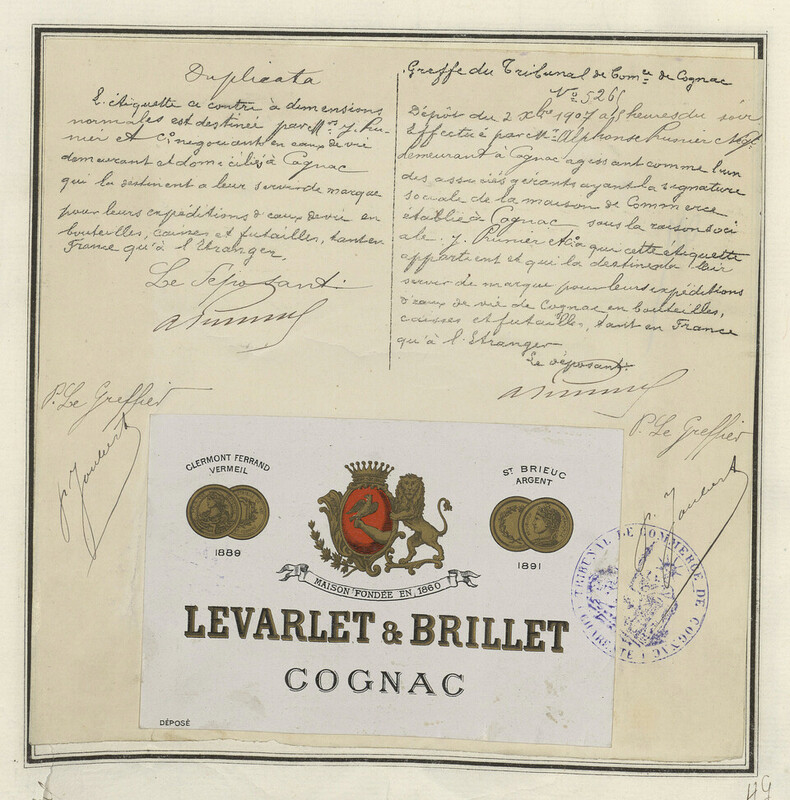 Duplicata
L'étiquette ci contre à dimensions
normales est destinée par Mrs J. Pru-
nier et Cie negociant en eaux de vie
demeurant et domiciliés à Cognac
qui la destinent a leur servir de marque
pour leurs expéditions d'eaux de vie en
bouteilles, caisses et futailles, tant en
France qu'à l'Etranger.
Le Déposant.
Greffe du Tribunal de Comce de Cognac
No 526
Dépôt du 2 Xbre 1907 à 5 heures du soir
Effectué par Mr. Alphonse Prunier Negt.
demeurant à Cognac agissant comme l'un
des associés gérants ayant la signature
sociale de la maison de Commerce
établie à Cognac sous la raison soci
ale. J. Prunier & Cie que cette étiquette
appartient et qui la destine à leur
servir de marque pour leurs expéditions
d'eaux de vie de Cognac en bouteilles,
caisses et futailles, tant en France
qu'à l'Etranger
Le déposant.
P. Le Greffier
P. Le Greffier
J. Joubert
J. Joubert
CLERMONT FERRAND
VERMEIL
1889
ST BRIEUC
ARGENT
1891
MAISON FONDÉE EN 1860
LEVARLET & BRILLET
COGNAC
DÉPOSÉ
TRIBUNAL DE COMMERCE DE COGNAC
CHARENTE
49